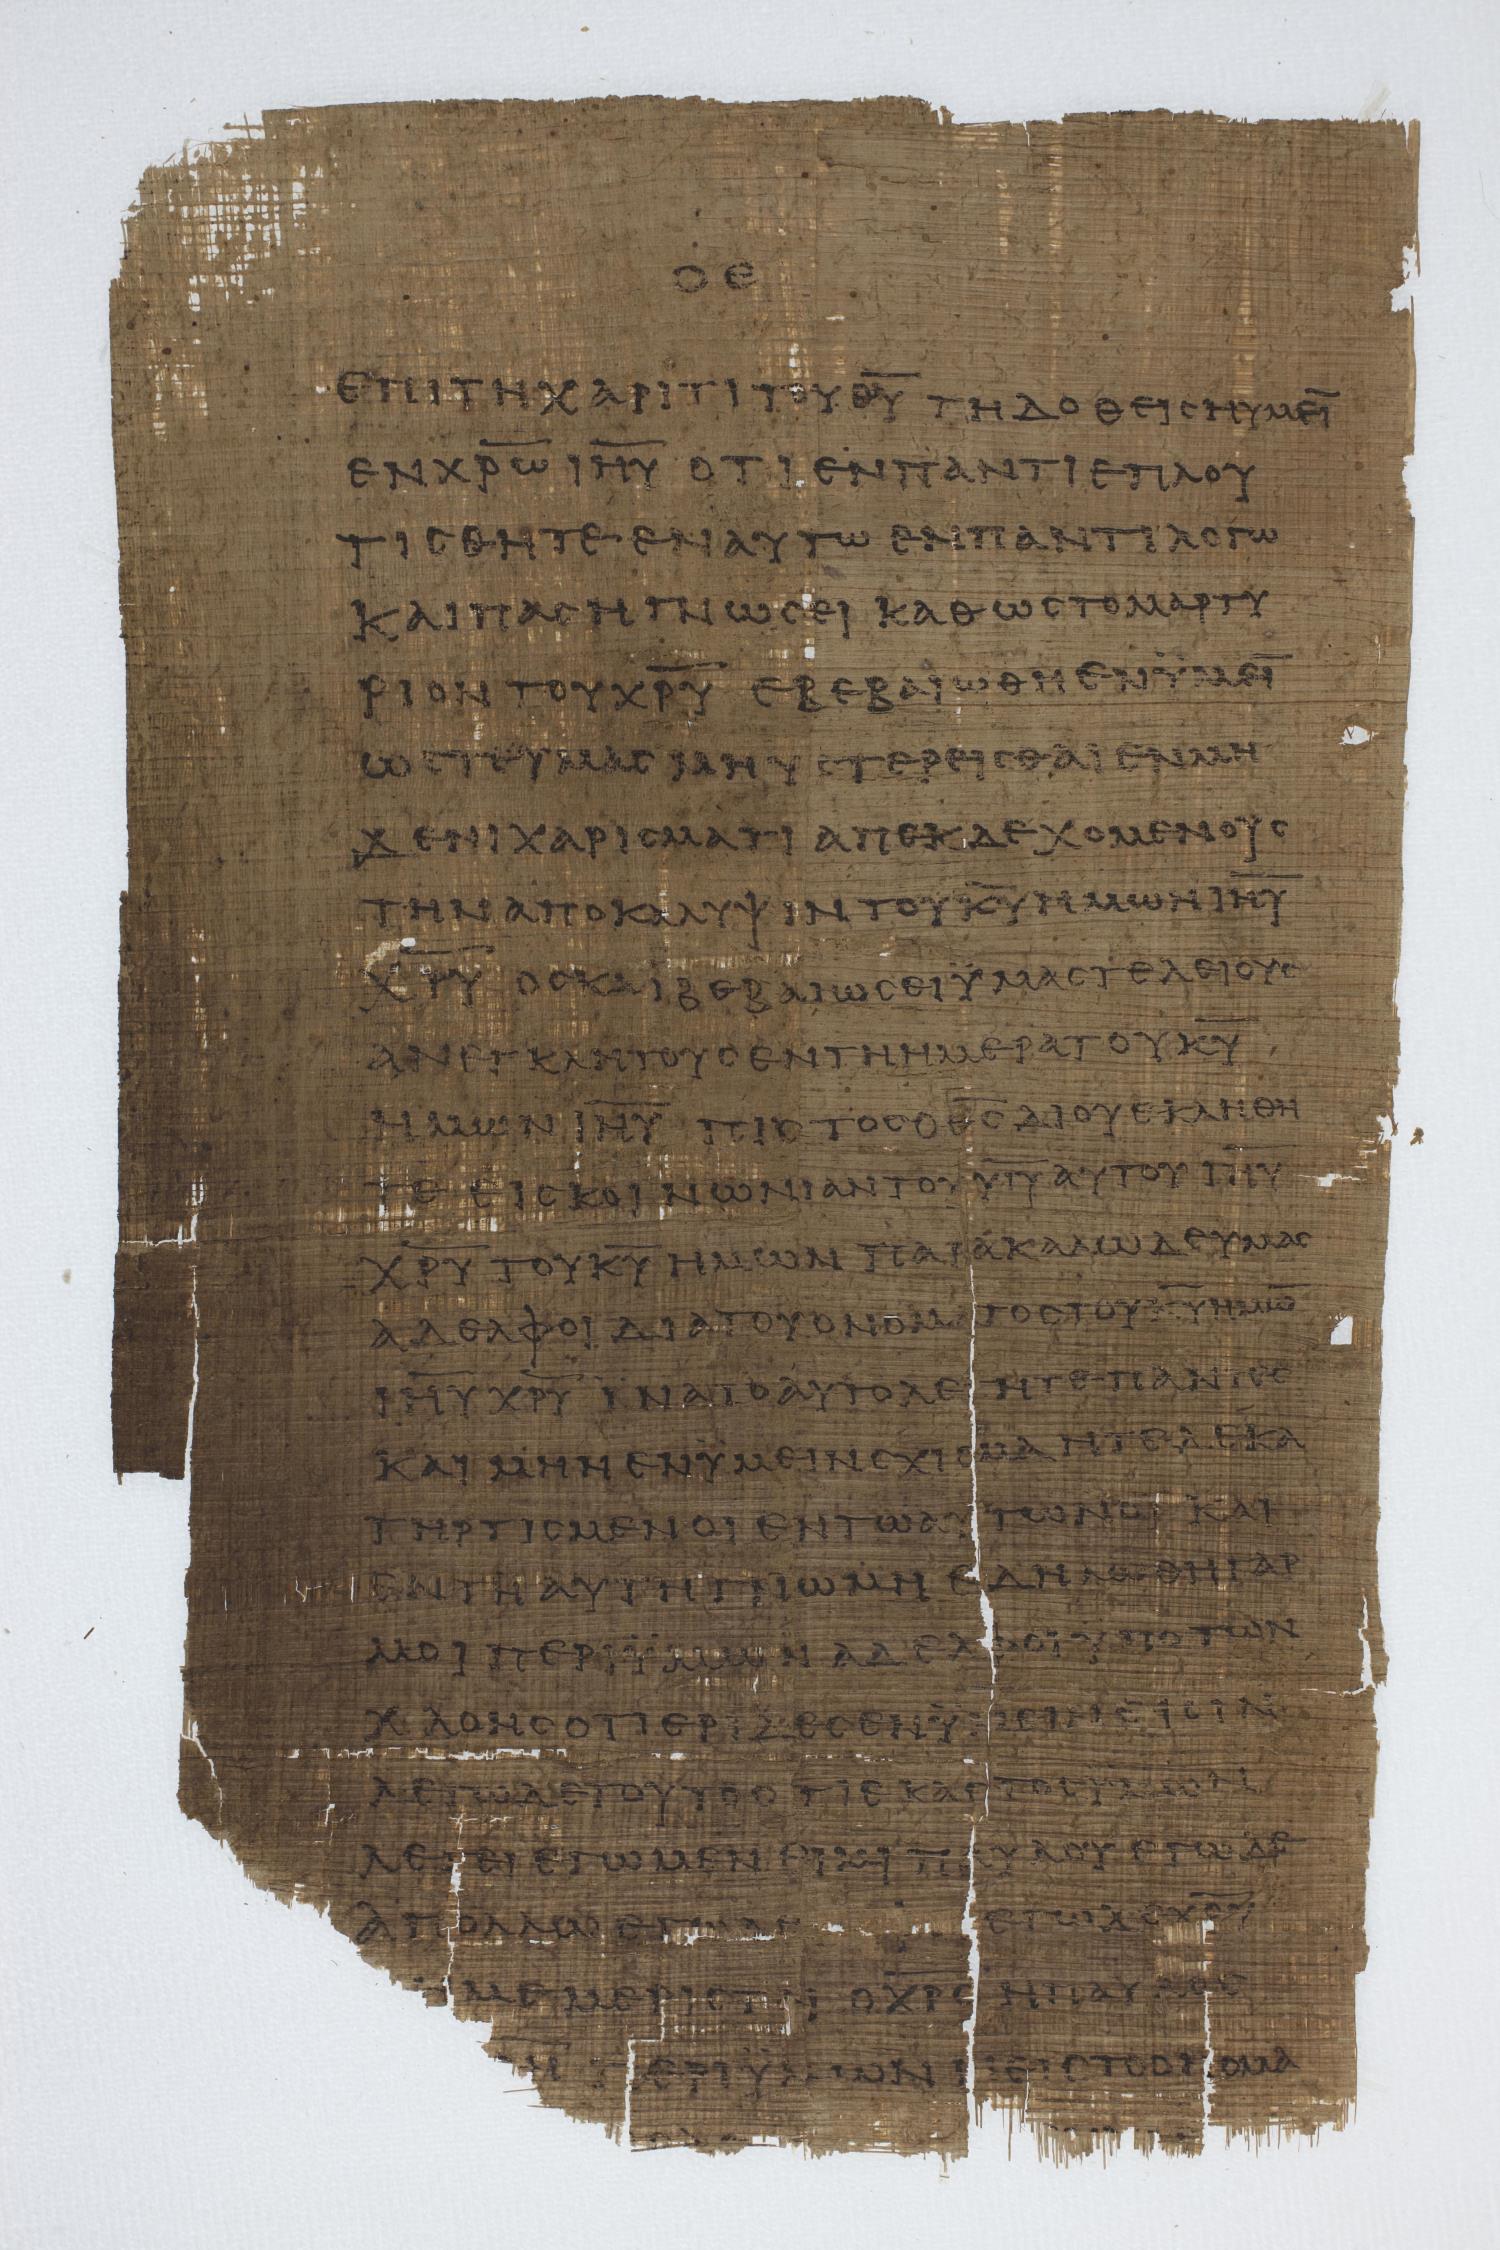 ΟΕ
ΕΠΙ ΤΗ ΧΑΡΙΤΙ ΤΟΥ Θ̅Υ̅ ΤΗ ΔΟΘΕΙСΗ ΥΜΕΙ̅
ΕΝ ΧΡ̅Ω̅ ΙΗ̅Υ̅ ΟΤΙ ΕΝ ΠΑΝΤΙ ΕΠΛΟΥ
ΤΙСΘΗΤΕ ΕΝ ΑΥΤΩ ΕΝ ΠΑΝΤΙ ΛΟΓΩ
ΚΑΙ ΠΑСΗ ΓΝΩСΕΙ ΚΑΘΩС ΤΟ ΜΑΡΤΥ
ΡΙΟΝ ΤΟΥ ΧΡ̅Υ̅ ΕΒΕΒΑΙΩΘΗ ΕΝ ΫΜΕΙ̅
ΩСΤΕ ΥΜΑС ΜΗ ΥСΤΕΡΕΙСΘΑΙ ΕΝ ΜΗ
ΔΕΝΙ ΧΑΡΙСΜΑΤΙ ΑΠΕΚΔΕΧΟΜΕΝΟΥС
ΤΗΝ ΑΠΟΚΑΛΥΨΙΝ ΤΟΥ Κ̅Υ̅ ΗΜΩΝ ΙΗ̅Υ̅
ΧΡ̅Υ̅ ΟС ΚΑΙ ΒΕΒΑΙΩСΕΙ ΫΜΑС ΤΕΛΕΙΟΥС
ΑΝΕΓΚΛΗΤΟΥС ΕΝ ΤΗ ΗΜΕΡΑ ΤΟΥ Κ̅Υ̅
ΗΜΩΝ ΙΗ̅Υ̅ ΠΙСΤΟС Ο Θ̅С̅ ΔΙ ΟΥ ΕΚΛΗΘΗ
ΤΕ ΕΙС ΚΟΙΝΩΝΙΑΝ ΤΟΥ Υ̅Ι̅Υ̅ ΑΥΤΟΥ ΙΗ̅Υ̅
ΧΡ̅Υ̅ ΤΟΥ Κ̅Υ̅ ΗΜΩΝ ΠΑΡΑΚΑΛΩ ΔΕ ΥΜΑС
ΑΔΕΛΦΟΙ ΔΙΑ ΤΟΥ ΟΝΟΜΑΤΟС ΤΟΥ Κ̅Υ̅ ΗΜΩ̅
ΙΗ̅Υ̅ ΧΡ̅Υ̅ ΪΝΑ ΤΟ ΑΥΤΟ ΛΕΓΗΤΕ ΠΑΝΤΕС
ΚΑΙ ΜΗ Η ΕΝ ΫΜΕΙΝ СΧΙСΜΑ ΗΤΕ ΔΕ ΚΑ
ΤΗΡΤΙСΜΕΝΟΙ ΕΝ ΤΩ ΑΥΤΩ ΝΟΙ ΚΑΙ
ΕΝ ΤΗ ΑΥΤΗ ΓΝΩΜΗ ΕΔΗΛΩΘΗ ΓΑΡ
ΜΟΙ ΠΕΡΙ ΫΜΩΝ ΑΔΕΛΦΟΙ ΥΠΟ ΤΩΝ
ΧΛΟΗС ΟΤΙ ΕΡΙΔΕС ΕΝ ΫΜΕΙΝ ΕΙСΙΝ
ΛΕΓΩ ΔΕ ΤΟΥΤΟ ΟΤΙ ΕΚΑСΤΟС ΫΜΩΝ
ΛΕΓΕΙ ΕΓΩ ΜΕΝ ΕΙΜΙ ΠΑΥΛΟΥ ΕΓΩ ΔΕ
ΑΠΟΛΛΩ ΕΓΩ ΔΕ ΕΓΩ ΔΕ ΧΡ̅Υ̅
ΜΕΜΕΡΙСΤΑΙ Ο ΧΡ̅С̅ ΜΗ ΠΑΥΛΟС
ΠΕΡΙ ΫΜΩΝ Η ΕΙС ΤΟ ΟΝΟΜΑ